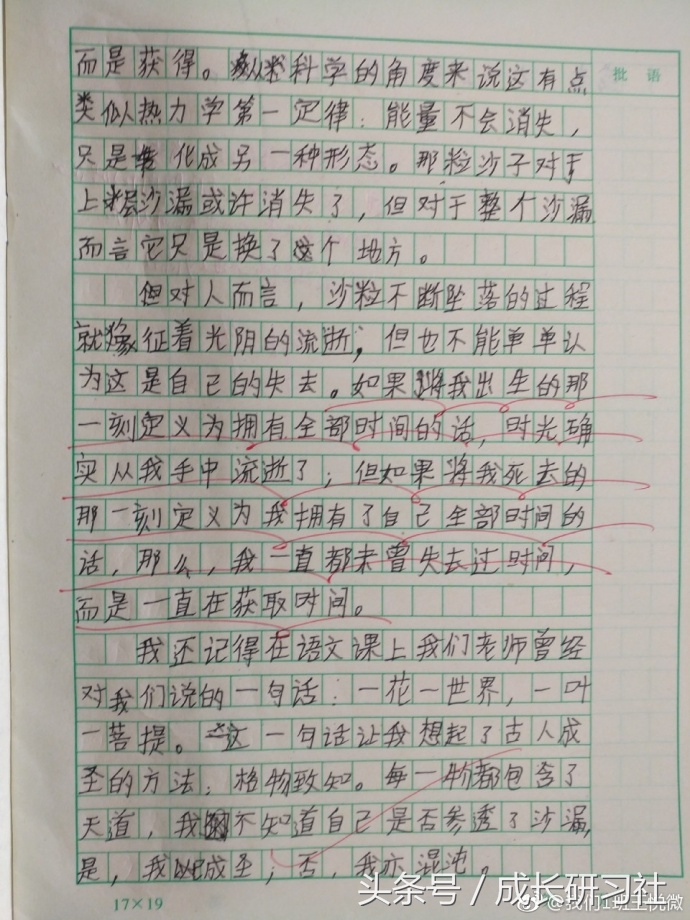 而是获得。从科学的角度来说这有点
批语
类似热力学第一定律：能量不会消失，
只是转化成另一种形态。那粒沙子对于
上半层沙漏或许消失了，但对于整个沙漏
而言它只是换了个地方。
但对人而言，沙粒不断坠落的过程
就像征着光阴的流逝，但也不能单单认
为这是自己的失去。如果将我出生的那
一刻定义为拥有全部时间的话，时光确
实从我手中流逝了；但如果将我死去的
那一刻定义为我拥有了自己全部时间的
话，那么，我一直都未曾失去过时间，
而是一直在获取时间。
我还记得在语文课上我们老师曾经
对我们说的一句话：一花一世界，一叶
一菩提。这一句话让我想起了古人成
圣的方法：格物致知。每一物都包含了
天道，我不知道自己是否参透了沙漏，
是，我成圣；否，我亦混沌。
17×19
头条号／成长研习社
@我们1班王悦微